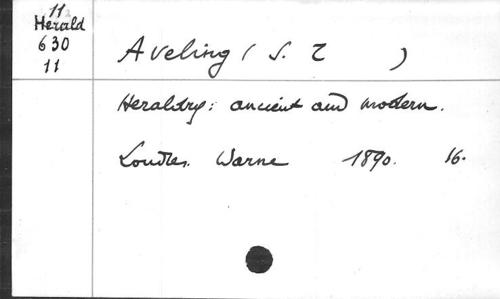 11
Herald
630
11
Aveling (S. T )
Heraldry: ancient and modern.
Londres. Warne 1890. 16.